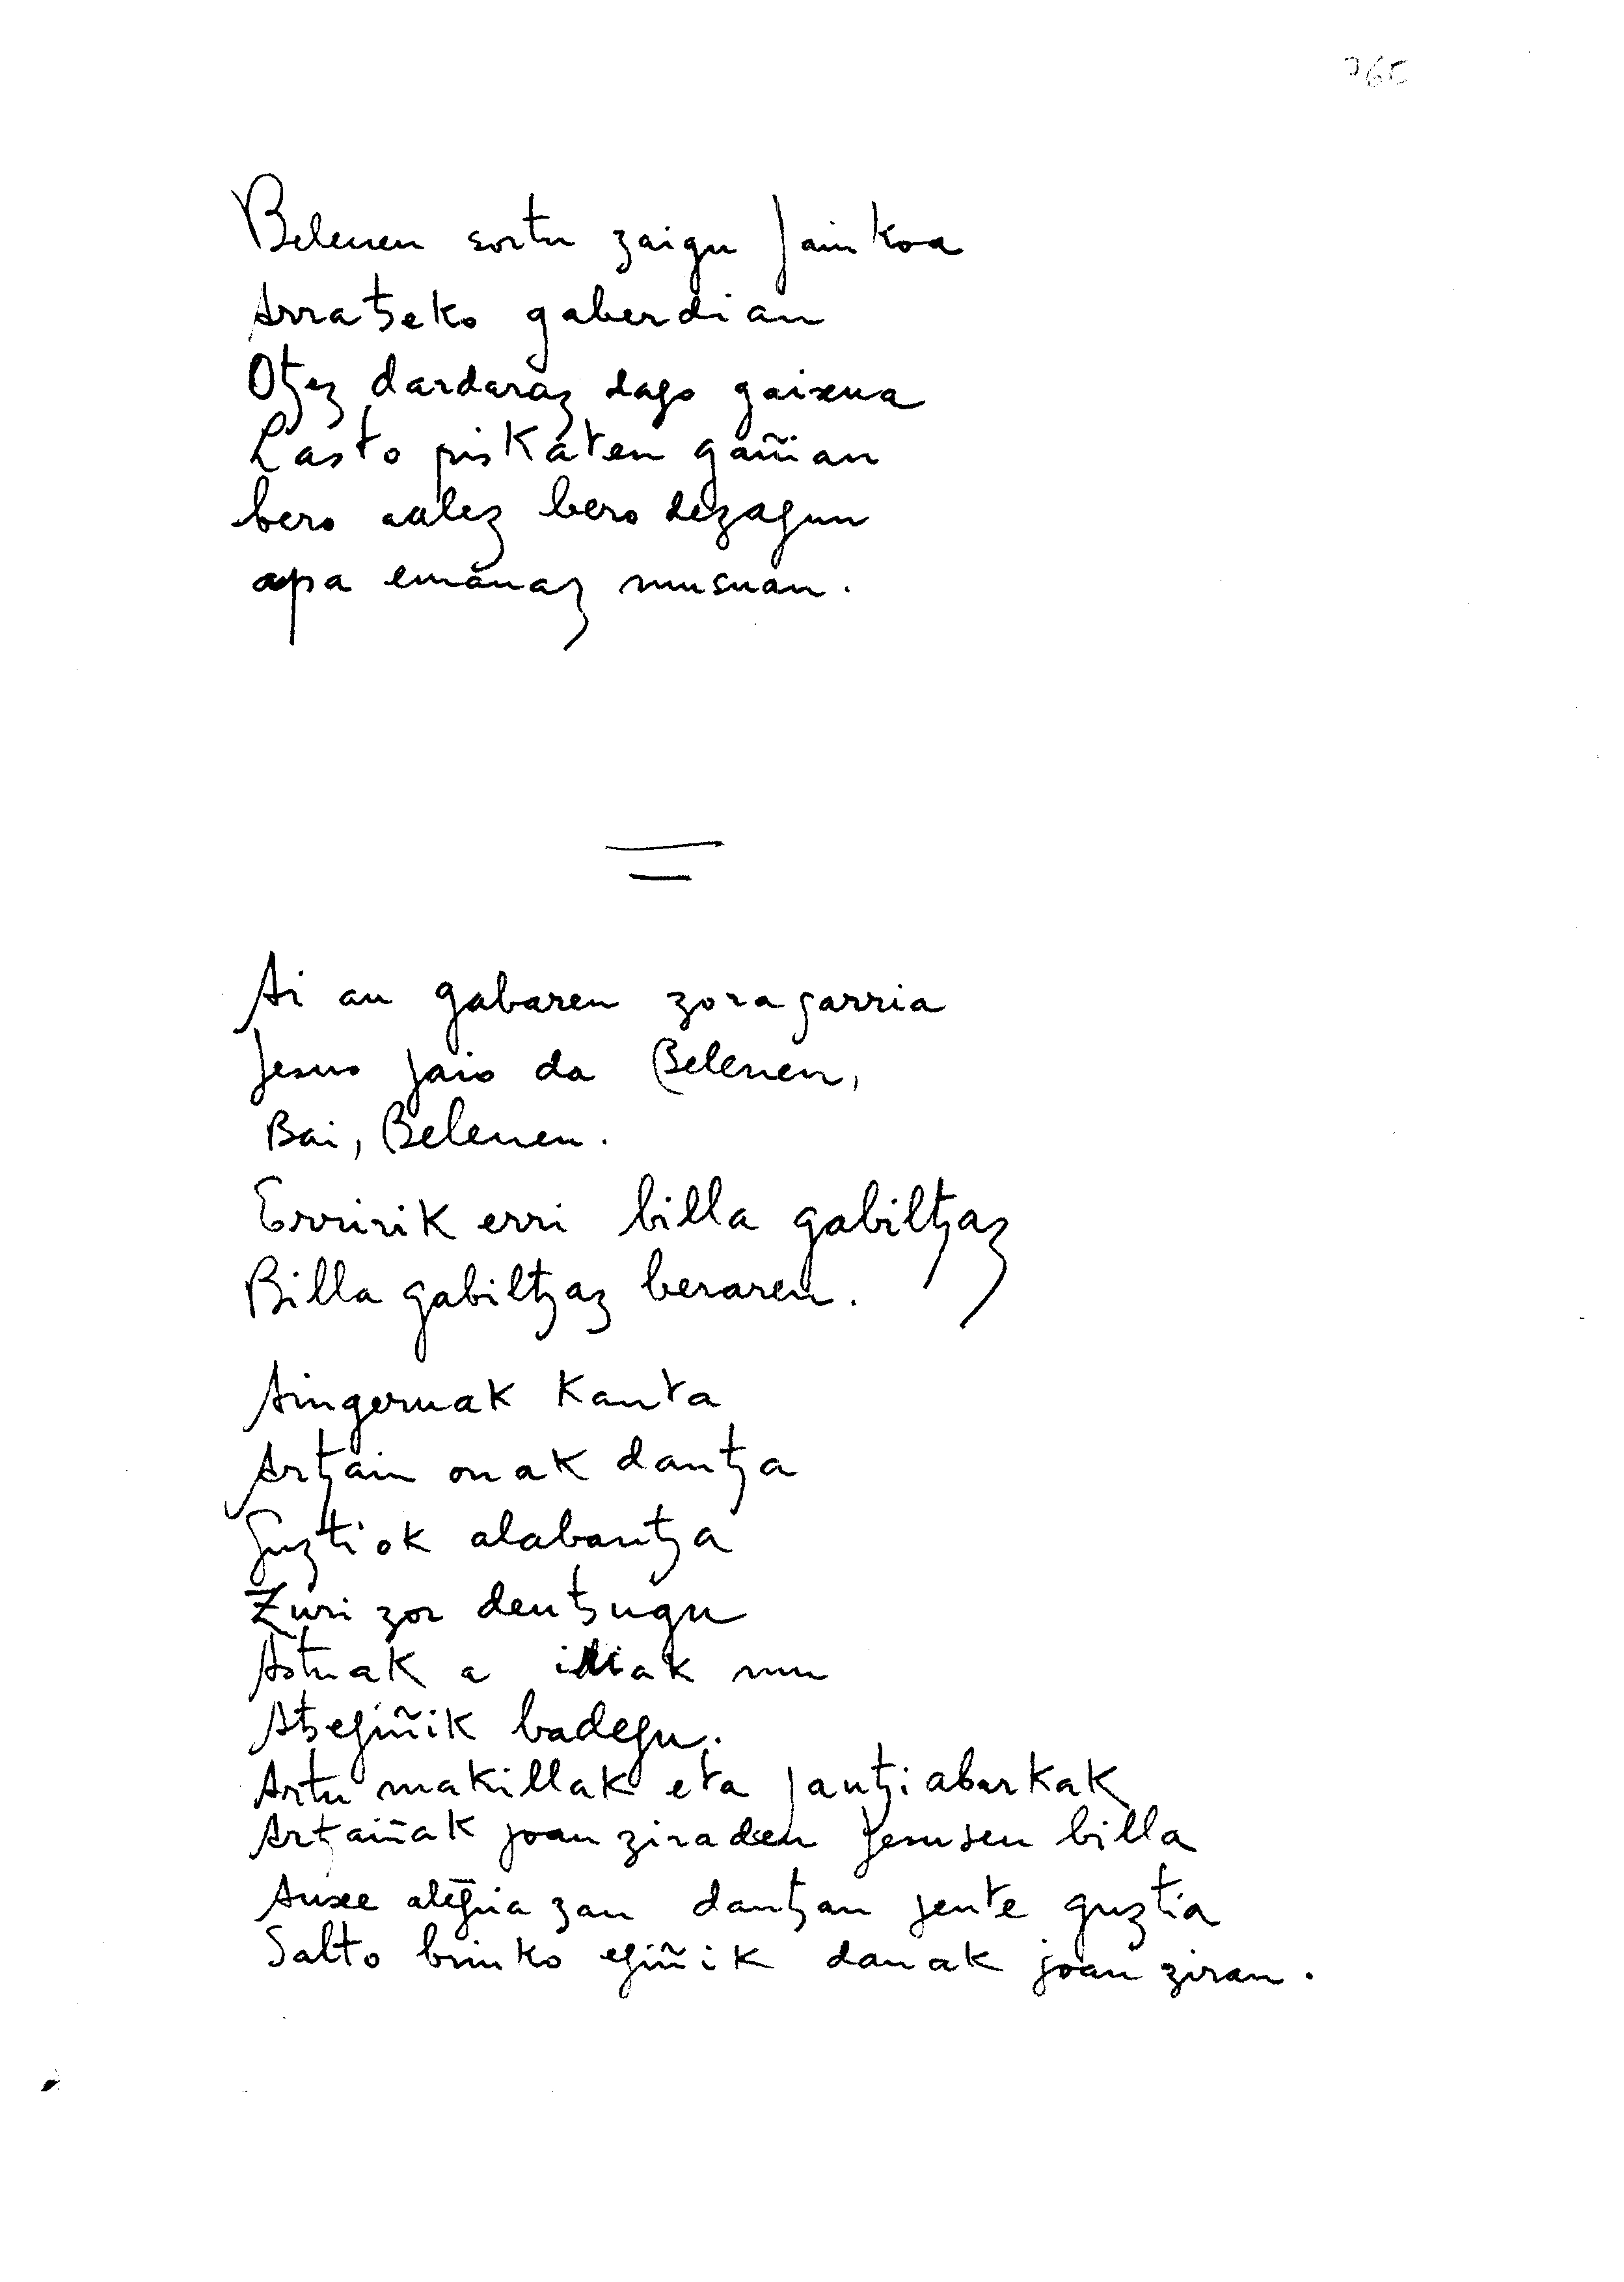 Belenen sortu zaigu Jainkoa
Arratseko gaberdian
Otzez dardaraz dago gaixua
Lasto piskaten gañian
bero aalez bero dezagun
apa emanaz musuan.
Ai au gabaren zoragarria
Jesus jaio da Belenen,
Bai, Belenen.
Erririk erri billa gabiltzaz
Billa gabiltzaz beraren.
Aingeruak kanta
Artzain onak dantza
Guztiok alabantza
Zuri zor deutsugu
Astuak a idiak mu
Atsegiñik badegu.
Artu makillak eta jantzi abarkak
Artzaiñak joan ziraden Jesusen billa
Auxe alegria zan dantzan jente guztia
Salto brinko egiñik danak joan ziran.